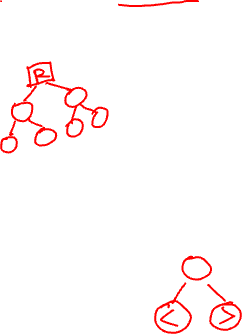 R
< >